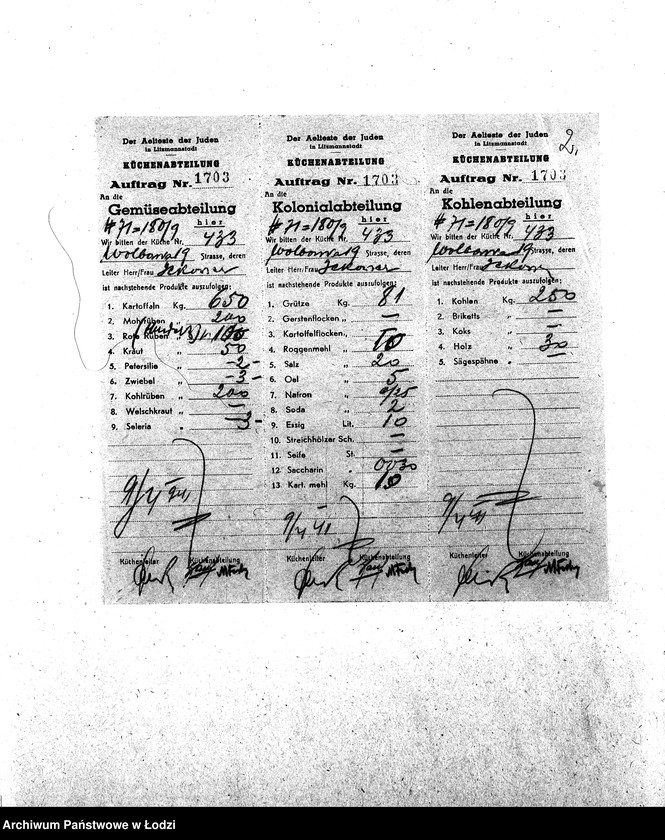 2.
Der Aelteste der Juden
in Litzmannstadt
KÜCHENABTEILUNG
Auftrag Nr. 1703
An die
Gemüseabteilung
hier
Wir bitten der Küche Nr. 433
Strasse, deren
Leiter Herr/Frau
ist nachstehende Produkte auszufolgen:
1. Kartoffeln Kg. 650
2. Mohrrüben 200
3. Rote Rüben
4. Kraut „ 50
5. Petersilie „ 2-
6. Zwiebel „ 3-
7. Kohlrüben „ 200
8. Welschkraut „ —
9. Seleria „ 3-
Küchenleiter Küchenabteilung
Der Aelteste der Juden
in Litzmannstadt
KÜCHENABTEILUNG
Auftrag Nr. 1703
An die
Kolonialabteilung
hier
Wir bitten der Küche Nr. 433
Strasse, deren
Leiter Herr/Frau
ist nachstehende Produkte auszufolgen:
1. Grütze Kg. 81
2. Gerstenflocken „ —
3. Kartoffelflocken „
4. Roggenmehl „ 10
5. Salz „ 20
6. Oel „ 5
7. Natron „
8. Soda „ 2
9. Essig Lit. 10
10. Streichhölzer Sch. —
11. Seife St. —
12 Saccharin „ 0030
13 Kart. mehl Kg. 10
Küchenleiter Küchenabteilung
Der Aelteste der Juden
in Litzmannstadt
KÜCHENABTEILUNG
Auftrag Nr. 1703
An die
Kohlenabteilung
hier
Wir bitten der Küche Nr. 433
Strasse, deren
Leiter Herr/Frau
ist nachstehende Produkte auszufolgen:
1. Kohlen Kg. 250
2. Briketts „ —
3. Koks „ —
4. Holz „ 30
5. Sägespähne „ —
Küchenleiter Küchenabteilung
Archiwum Państwowe w Łodzi